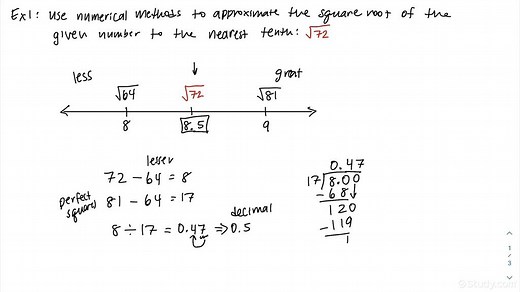 Ex1: Use numerical methods to approximate the square root of the
given number to the nearest tenth: √72
less
great
√64 √72 √81
8 8.5 9
lesser
72 − 64 = 8
perfect squares
81 − 64 = 17
decimal
8 ÷ 17 = 0.47 ⇒ 0.5
0.47
17 8.00
− 68
120
− 119
1
1
/
3
Study.com